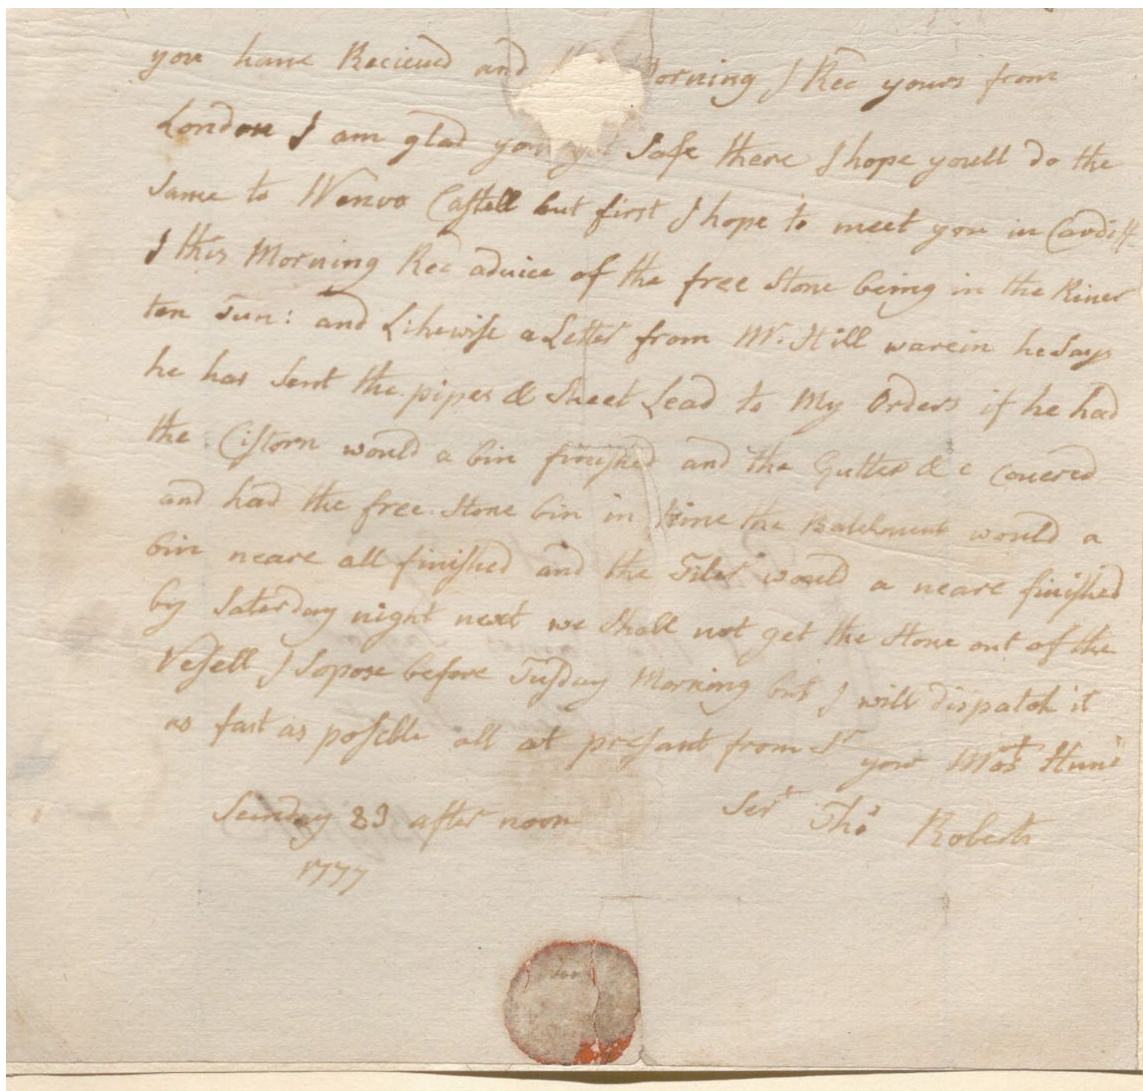 you have Recieued and orning I Rec yours from
London I am glad you got Safe there I hope youll do the
Same to Wenvo Castell but first I hope to meet you in Cardiff
I this Morning Rec advice of the free Stone being in the River
ten Tun: and Likewise a Letter from Mr. Hill warein he Says
he has Sent the pipes & Sheet Lead to My Orders if he had
the Cistorn would a bin finished and the Gutters &c couered
and had the free Stone bin in time the Batelment would a
bin neare all finished and the Tiler would a neare finished
by Saterday night next we Shall not get the Stone out of the
Vesell I Sopose before Tusday Morning but I will dispatch it
as fast as poscble all at presant from Sr your Most Hune
Sunday 23 after noon Sert Thos Roberts
1777